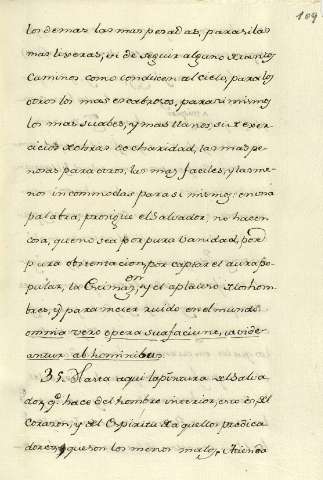 109
los demas las mas pesadas, para si las
mas ligeras, si de seguir alguno de tantos
Caminos como conducen al cielo, para los
otros los mas escabrosos, para si mismos
los mas suabes, y mas llanos, si de exer-
cicios de obras de charidad, las mas pe-
nosas para otros, las mas faciles, y las me-
nos incommodas para si mismos: en una
palabra, prosigue el Salvador, no hacen
cosa, que no sea por pura vanidad, por
pura obstentacion, por captar el aura po-
pular, la Estima, en y el aplauso de los hom-
bres, y para meter ruido en el mundo
omnia vero opera sua faciunt, ut vide-
antur ab hominibus.
35. Hasta aqui la pintura de el Salva-
dor, q.e hace del hombre interior, esto es de el
Corazon, y de el Espiritu de aquellos predica-
dores, que son los menos malos. Atienda